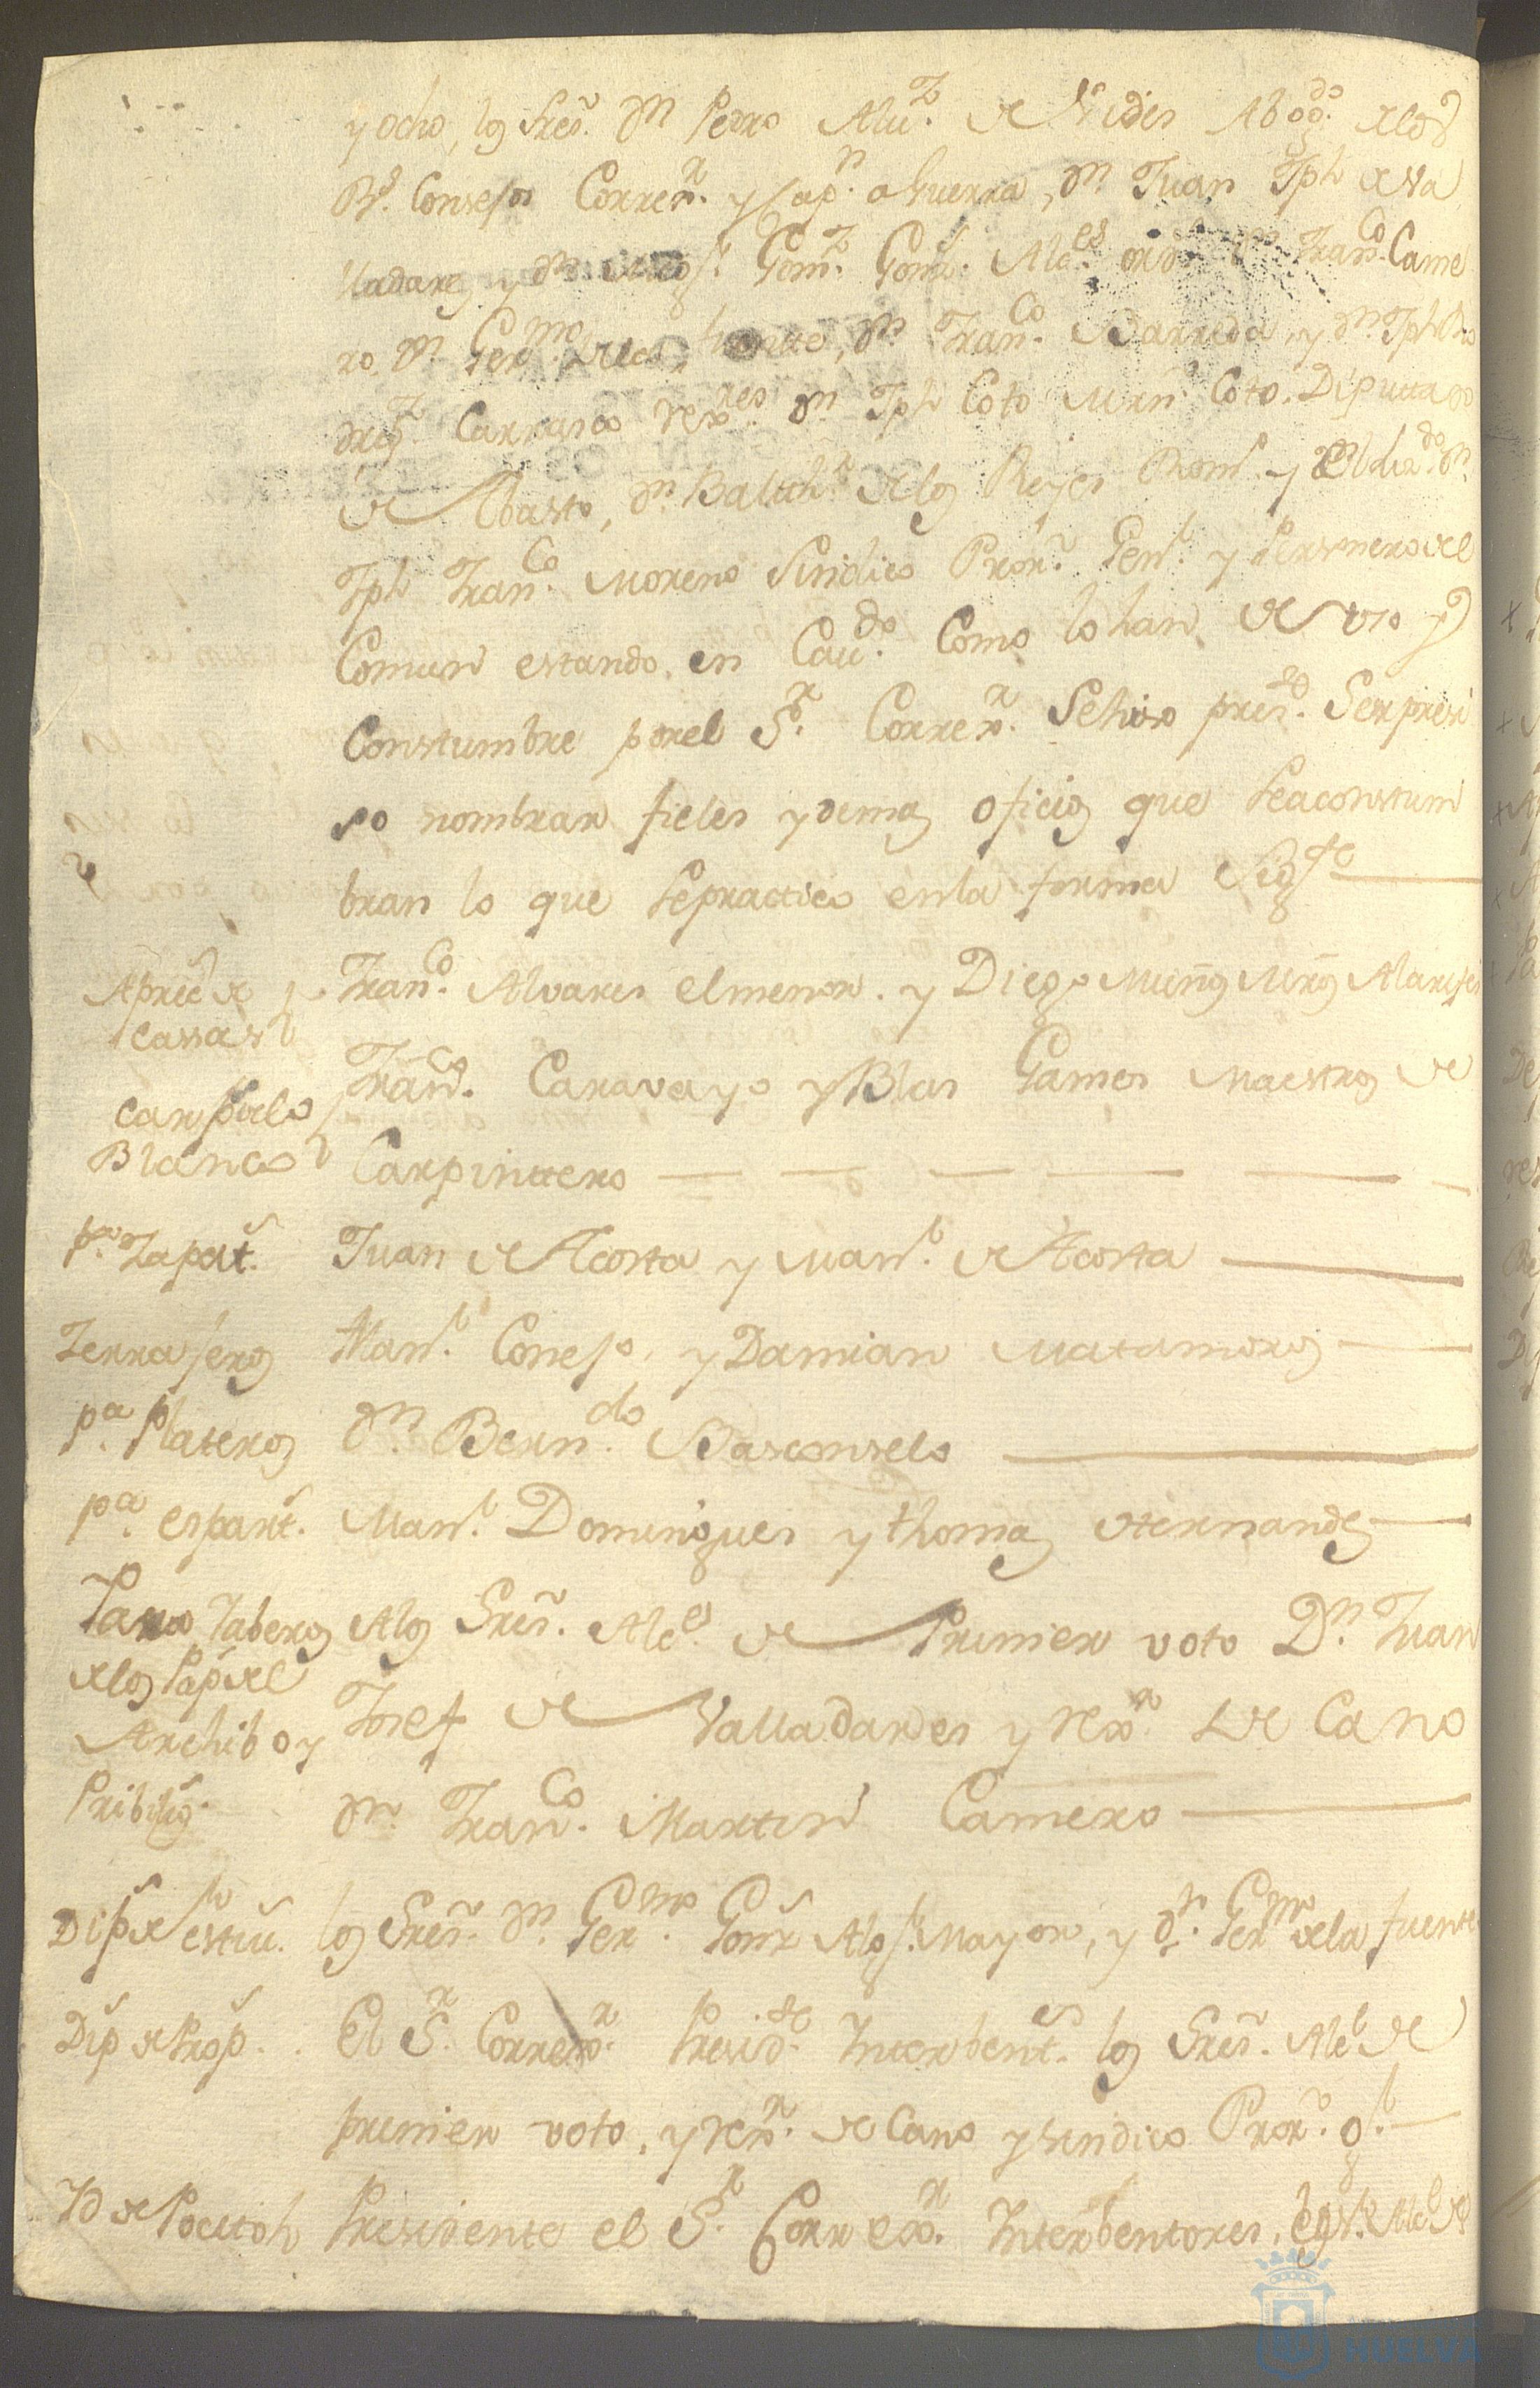 y ocho, los Sres. Dn Pedro Aluz. de Vides Abogdo. de los
Rs. Consejos Correxr. y Capn. a Guerra, Dn. Juan Jph de Va
lladares, y Dn. Gomz. Alces. ord Dn Franco. Came
ro, Dn. Germo. de la fuente, Dn. Franco. Barreda, y Dn. Jph Ro
drigz. Carrasco rexres. Dn Jph Coto Mrn Coto. Diputtado
de Abasto, Dn. Balthr. de los Reyes Dn.
Jph Franco. Moreno Sindico Pror. Genl. y Personero del
Comun estando en Cavdo. Como lo han de uso y
Constumbre por el Sr. Correxr. Se hiso preste. Ser presi
so nombrar fieles y demas oficios que se aconstum
bran lo que se practico en la forma Sigte
Aprec de Casas Franco. Alvares el menor. y Diego Muñoz Mrnz Alarifes
Carp de lo Franco. Caravayo y Blas Games Maestros de
Blanco Carpinttero
Pa. Zapat. Juan de Acosta y Manl. de Acosta
Zerrajeros Manl. Conejo, y Damian Matamoros
Pa. Plateros Dn. Berndo. Basconselo
Pa. espart. Manl. Domingues y thomas Hernandes
Para Taberos A los Sres. Alces. de Primer voto Dn. Juan
de los Pap del Josef de Valladares y rexr. De Cano
Archibo y
Pribileg. Dn. Franco. Martin Camero
Dip de estiu. los Sres. Dn. Germo. Gonz Algl. Mayor, y Dn. Germo de la fuente
Dip de Prop. El Sr. Correxr. Presidte. Interbent. los Sres. Alcl de
primer voto, y rexr. de Cano y sindico Pror. gl.
Yd de Pocitoh Presidente el Sr. Correxr. Interbentores,
HUELVA